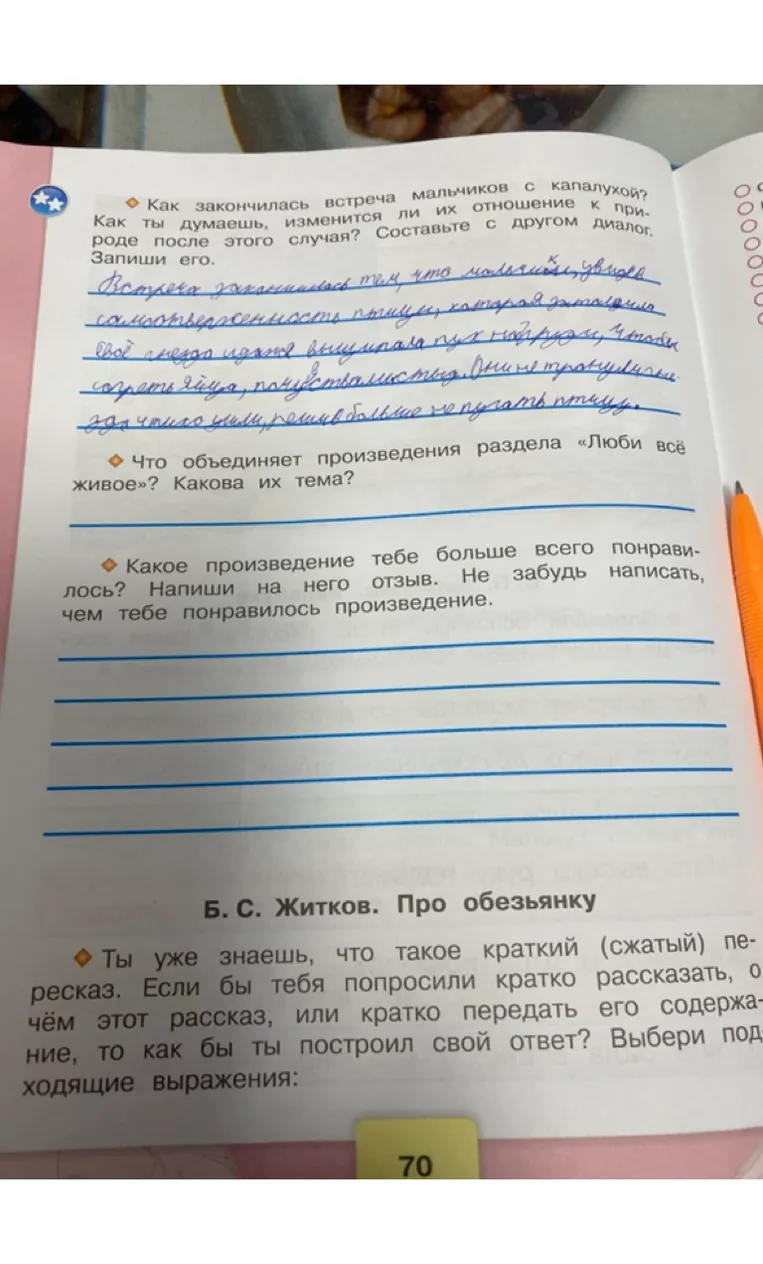 Как закончилась встреча мальчиков с капалухой?
Как ты думаешь, изменится ли их отношение к при-
роде после этого случая? Составьте с другом диалог.
Запиши его.
Встреча закончилась тем, что мальчики, увидев
самоотверженность птицы, которая
своё гнездо и даже выщипала пух на груди, чтобы
согреть яйца, почувствовали стыд. Они не тронули гне
зда и тихо ушли, решив больше не пугать птицу.
Что объединяет произведения раздела «Люби всё
живое»? Какова их тема?
Какое произведение тебе больше всего понрави-
лось? Напиши на него отзыв. Не забудь написать,
чем тебе понравилось произведение.
Б. С. Житков. Про обезьянку
Ты уже знаешь, что такое краткий (сжатый) пе-
ресказ. Если бы тебя попросили кратко рассказать, о
чём этот рассказ, или кратко передать его содержа-
ние, то как бы ты построил свой ответ? Выбери под-
ходящие выражения:
70